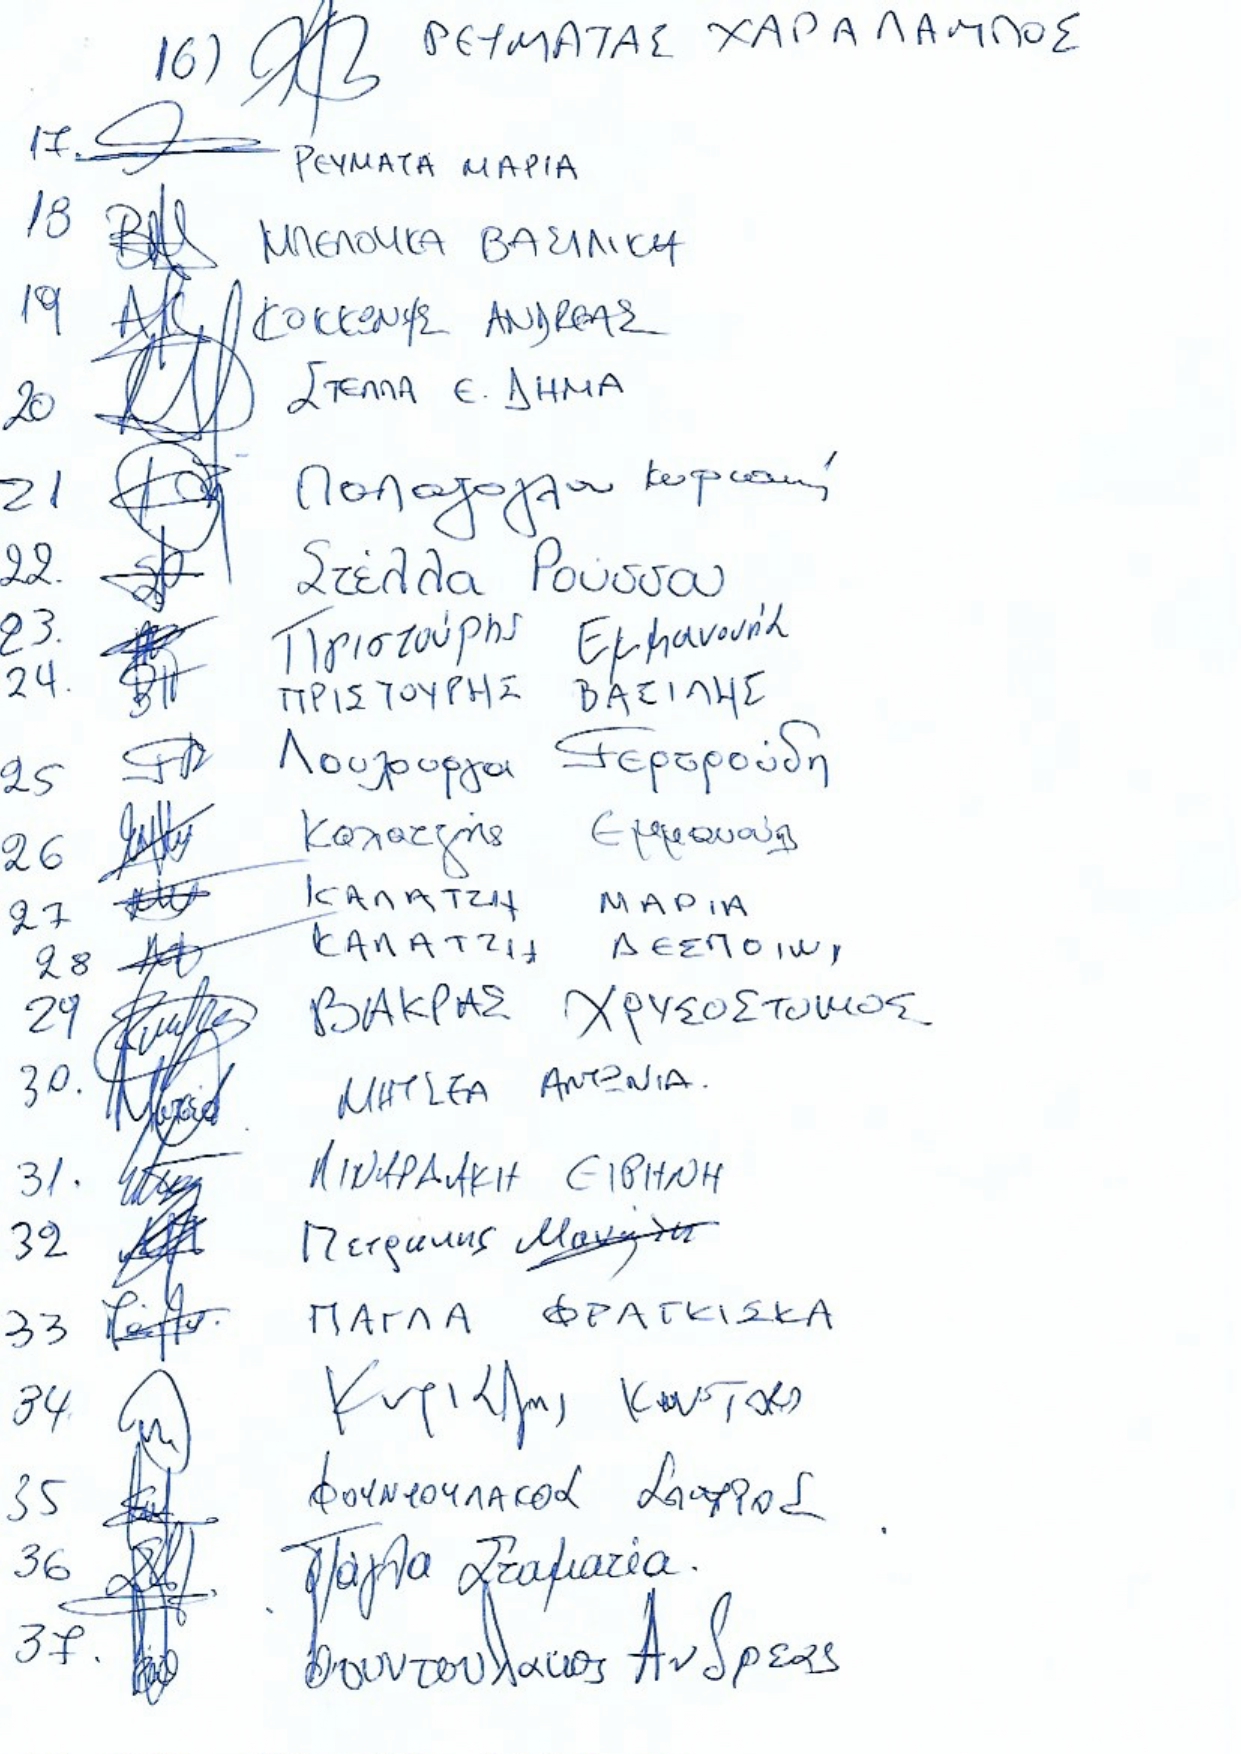 16) ΡΕΥΜΑΤΑΣ ΧΑΡΑΛΑΜΠΟΣ
17. ΡΕΥΜΑΤΑ ΜΑΡΙΑ
18 ΜΠΕΛΟΥΚΑ ΒΑΣΙΛΙΚΗ
19 ΚΟΚΚΩΝΗΣ ΑΝΔΡΕΑΣ
20 ΣΤΕΛΛΑ Ε. ΔΗΜΑ
21
22. Στέλλα Ρούσσου
23. Πριστούρης Εμμανουήλ
24. ΠΡΙΣΤΟΥΡΗΣ ΒΑΣΙΛΗΣ
25 Γερτρούδη
26 Καλατζής Εμμανουήλ
27 ΚΑΛΑΤΖΗ ΜΑΡΙΑ
28 ΚΑΛΑΤΖΗ ΔΕΣΠΟΙΝΗ
29 ΒΙΑΚΡΑΣ ΧΡΥΣΟΣΤΟΜΟΣ
30. ΜΗΤΣΕΑ ΑΝΤΩΝΙΑ.
31. ΛΙΝΑΡΔΑΚΗ ΕΙΡΗΝΗ
32 Πετράκης
33 ΠΑΓΛΑ ΦΡΑΓΚΙΣΚΑ
34
35 ΦΟΥΝΤΟΥΛΑΚΟΣ ΣΠΥΡΟΣ
36 Πάγλα Σταματία.
37. Φουντουλάκος Ανδρέας